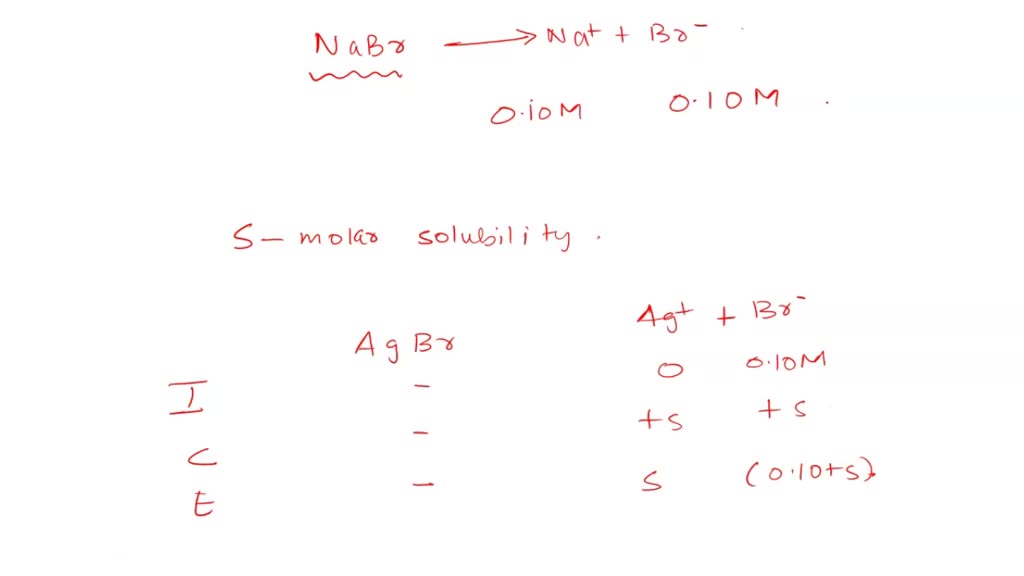 NaBr ⟶ Na⁺ + Br⁻
0.10M 0.10M
S – molar solubility.
AgBr Ag⁺ + Br⁻
I - 0 0.10M
C - +s +s
E - s (0.10+s).